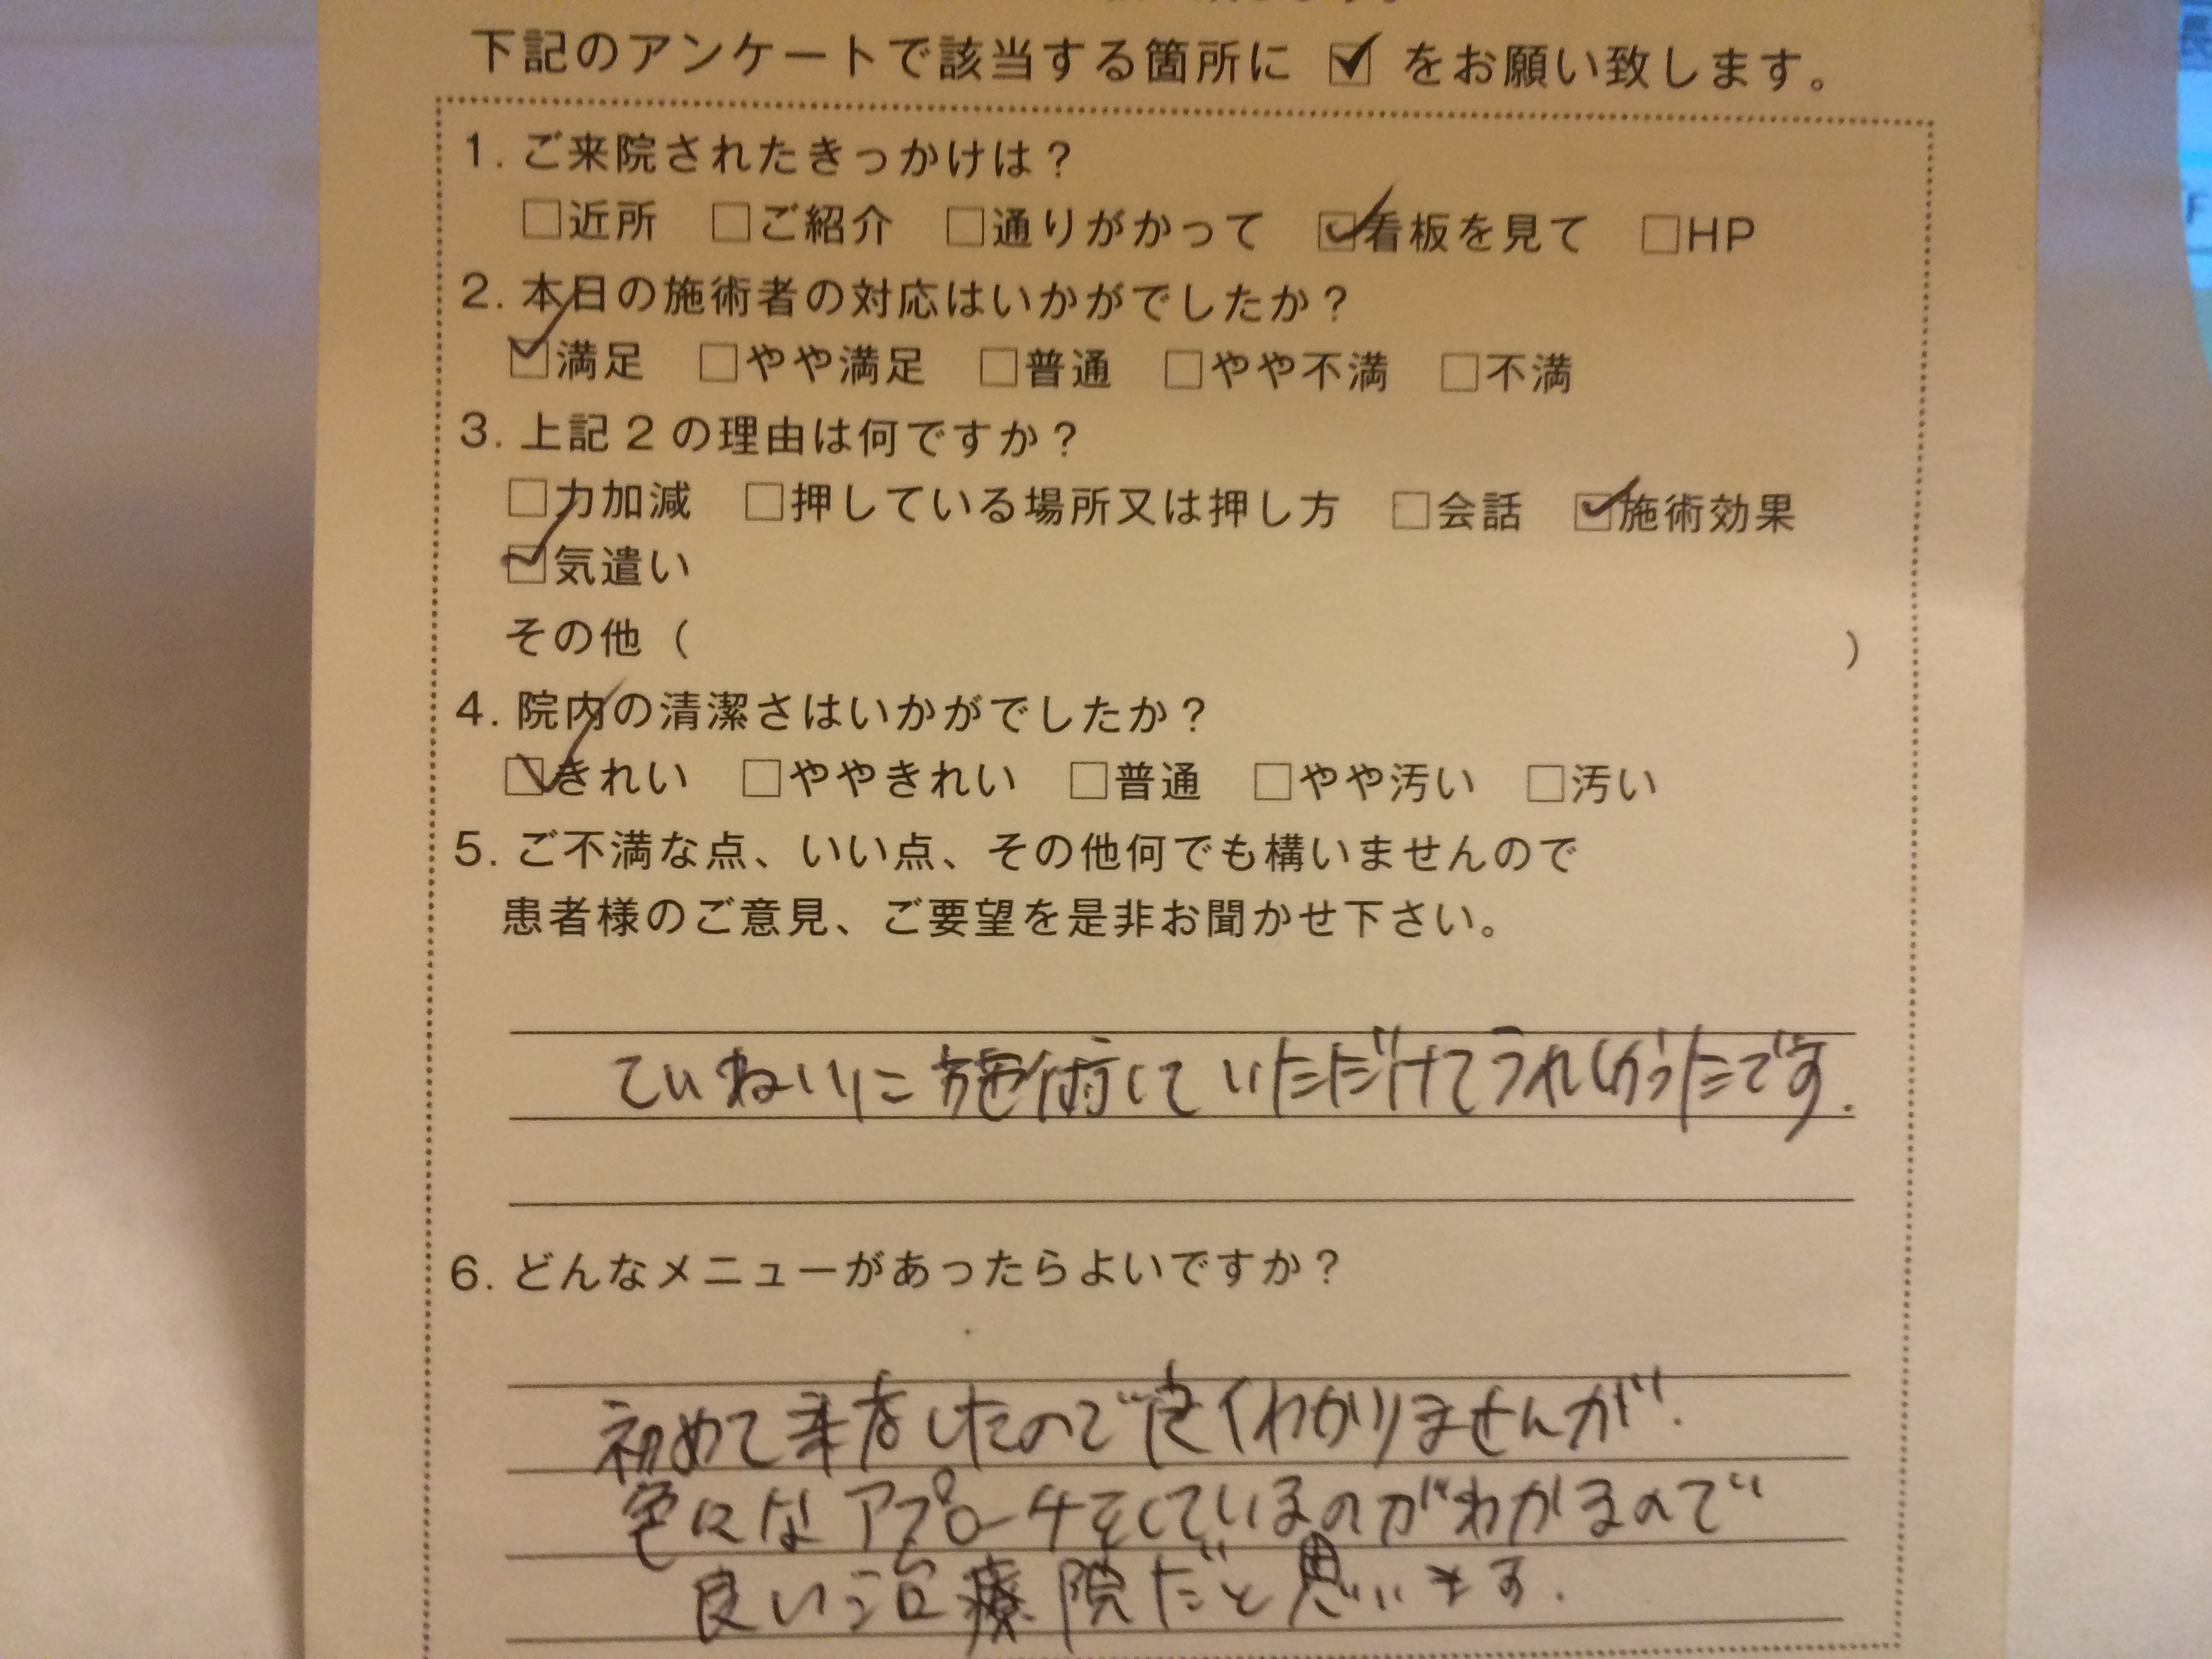 下記のアンケートで該当する箇所に ☑ をお願い致します。
1. ご来院されたきっかけは？
□近所 □ご紹介 □通りがかって ☑看板を見て □HP
2. 本日の施術者の対応はいかがでしたか？
☑満足 □やや満足 □普通 □やや不満 □不満
3. 上記2の理由は何ですか？
□力加減 □押している場所又は押し方 □会話 ☑施術効果
☑気遣い
その他（ ）
4. 院内の清潔さはいかがでしたか？
☑きれい □ややきれい □普通 □やや汚い □汚い
5. ご不満な点、いい点、その他何でも構いませんので
患者様のご意見、ご要望を是非お聞かせ下さい。
ていねいに施術していただけてうれしかったです.
6. どんなメニューがあったらよいですか？
初めて来たので良くわかりませんが.
色々なアプローチをしているのがわかるので
良い治療院だと思います.